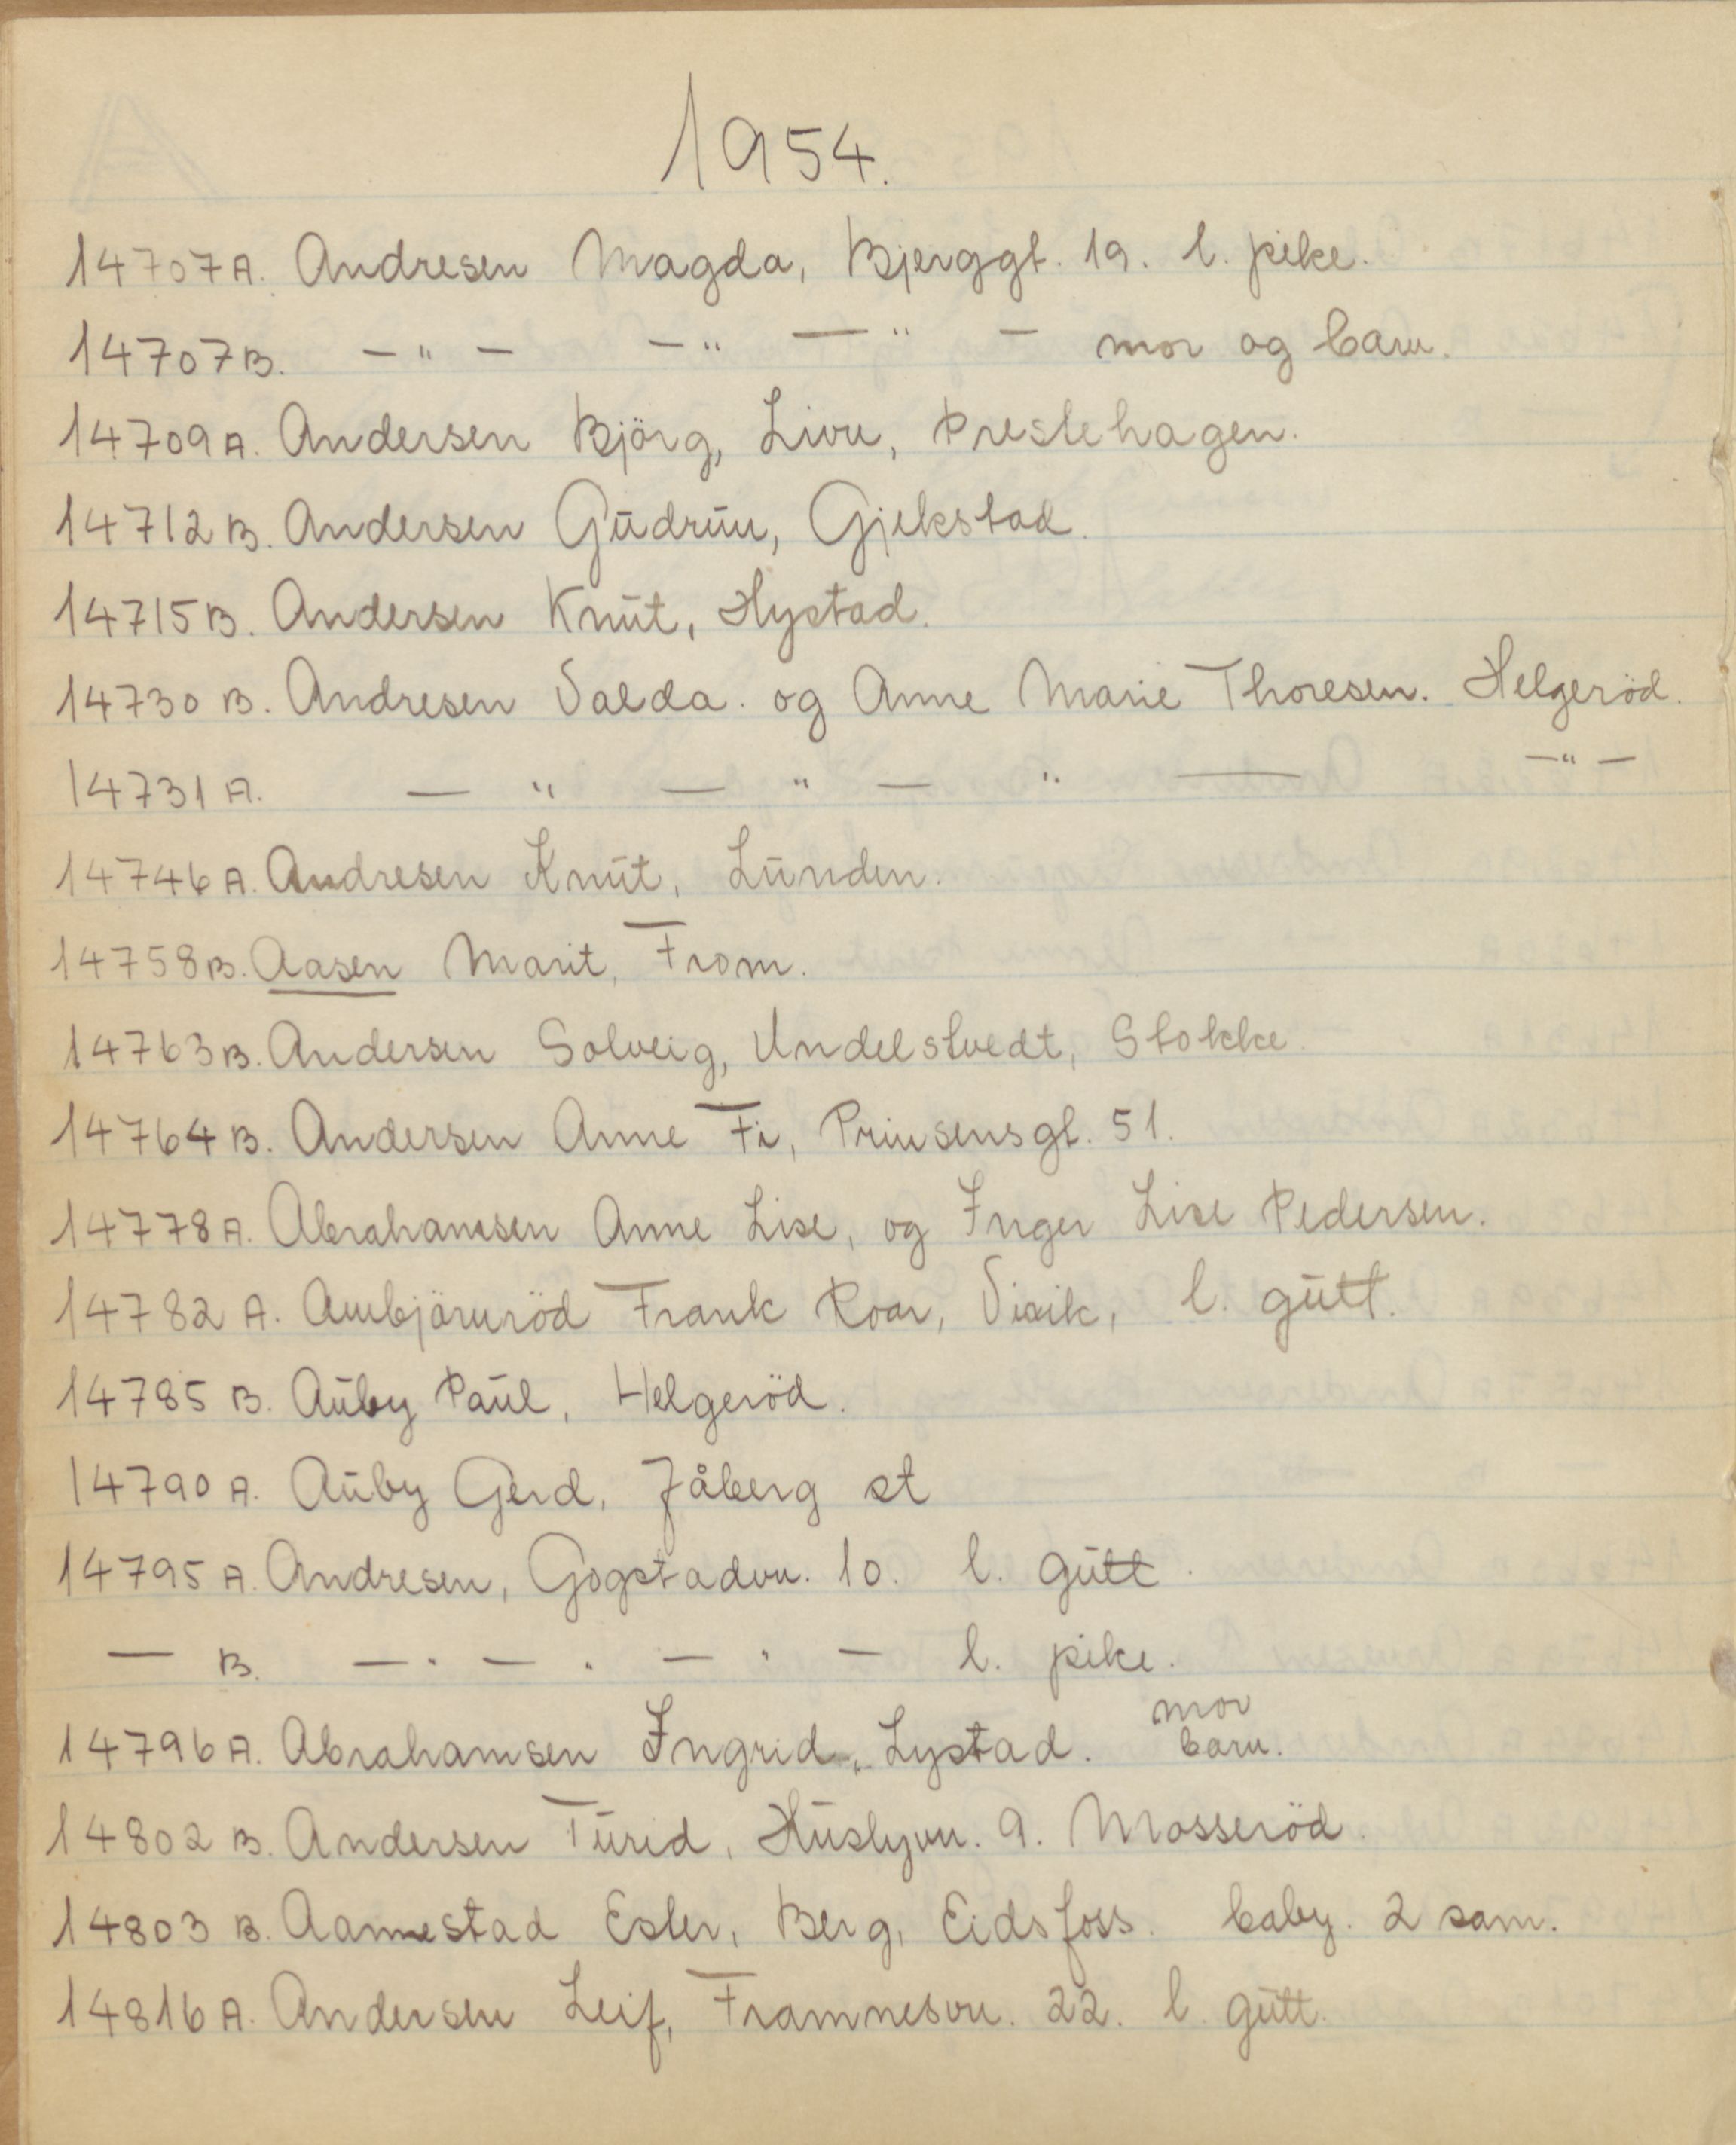 1954.
14707A. Andresen Magda, Bjerggt. 19. l. pike.
14707B. - " - - " — " - mor og barn.
14709A. Andersen Björg, Livn, Prestehagen.
14712B. Andersen Gudrun, Gjekstad.
14715B. Andersen Knut, Hystad.
14730 B. Andresen Valda. og Anne Marie Thoresen. Helgeröd.
14731 A. — " — " — " — - " -
14746 A. Andresen Knut, Lunden.
14758B. Aasen Marit, From.
14763B. Andersen Solveig, Undelstvedt, Stokke.
14764 B. Andersen Anne Fi, Prinsensgt. 51.
14778A. Abrahamsen Anne Lise, og Inger Lise Pedersen.
14782 A. Ambjörnröd Frank Roar, Virik, l. gutt.
14785 B. Auby Paul, Helgeröd.
14790 A. Auby Gerd, Jåberg st
14795 A. Andresen, Gogstadvn. 10. l. gutt.
— B. — . — . — . — l. pike.
14796 A. Abrahamsen Ingrid, Lystad. mor barn.
14802 B. Andersen Turid, Huslyvn. 9. Mosseröd.
14803 B. Aannestad Ester, Berg, Eidsfoss. baby. 2 sam.
14816 A. Andersen Leif, Framnesvn. 22. l. gutt.